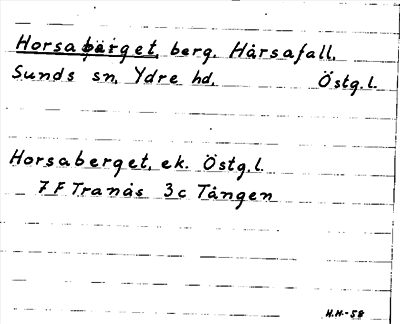 Horsabärget, berg. Hårsafall.
Sunds sn. Ydre hd. Östg.l.
Horsaberget, ek. Östg.l.
7 F Tranås 3c Tången
H.H.-58